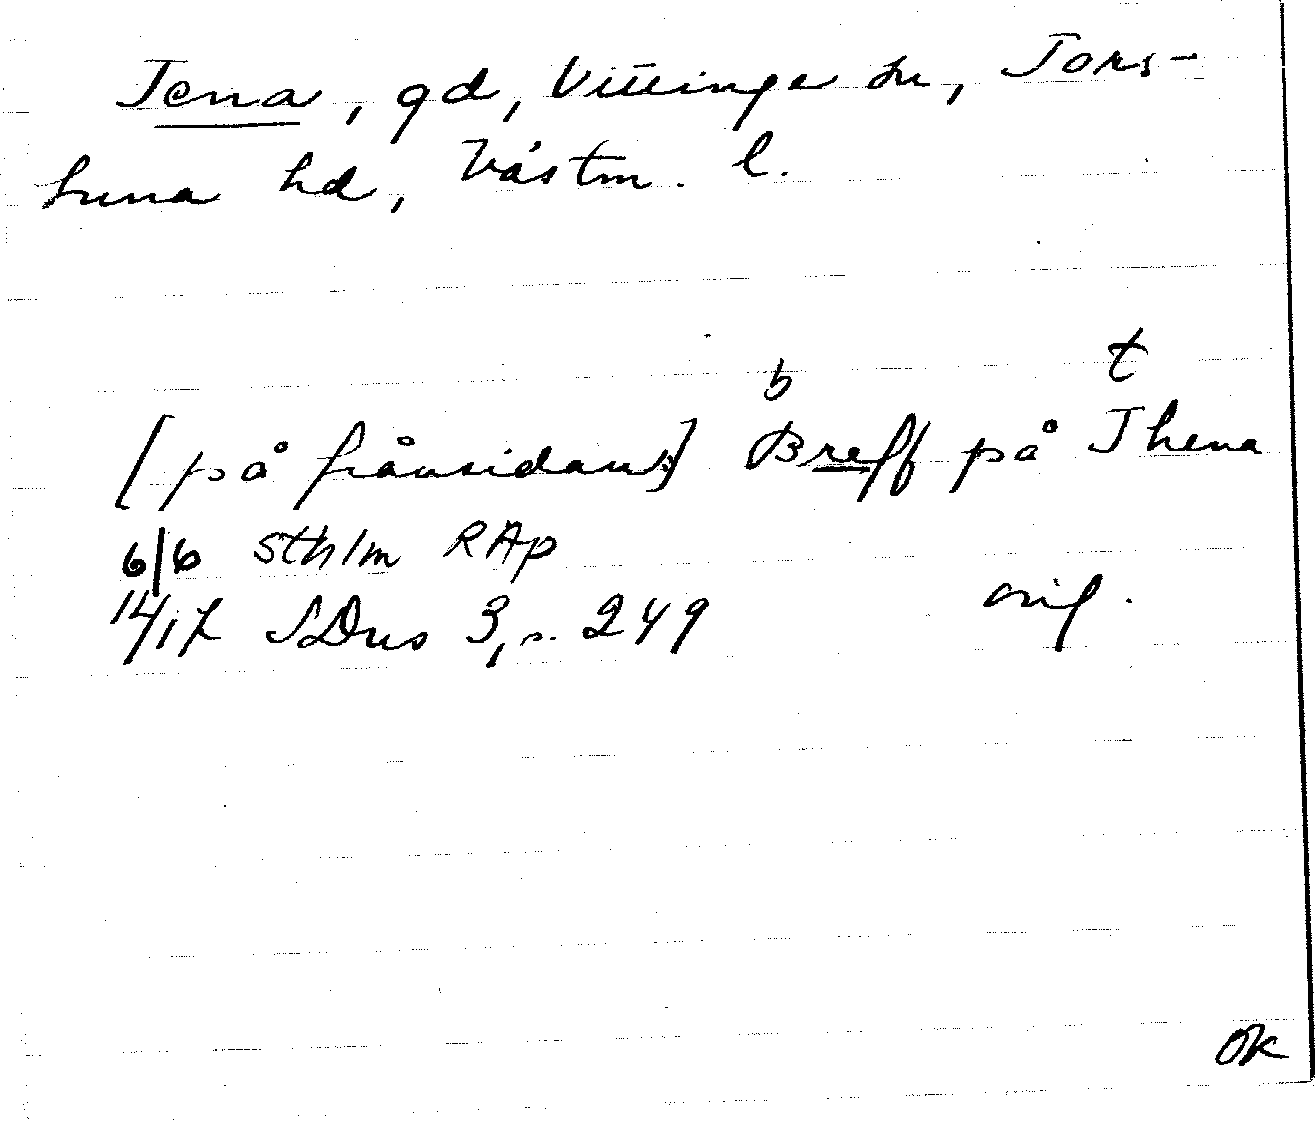 Tena, gd, Vittinge sn, Tors-
tuna hd, Västm. l.
b t
[på frånsidan:] Breff på Thena
6/6 Sthlm RAp
14/17 SDns 3, s. 249 orig.
OK